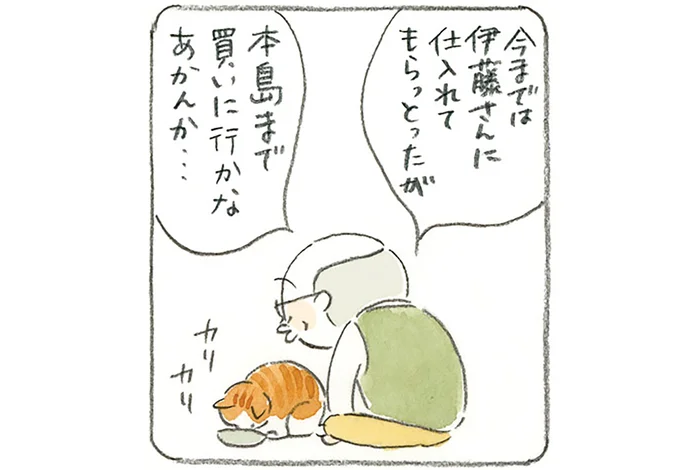 今までは
伊藤さんに
仕入れて
もらっとったが
本島まで
買いに行かな
あかんか…
カリ
カリ